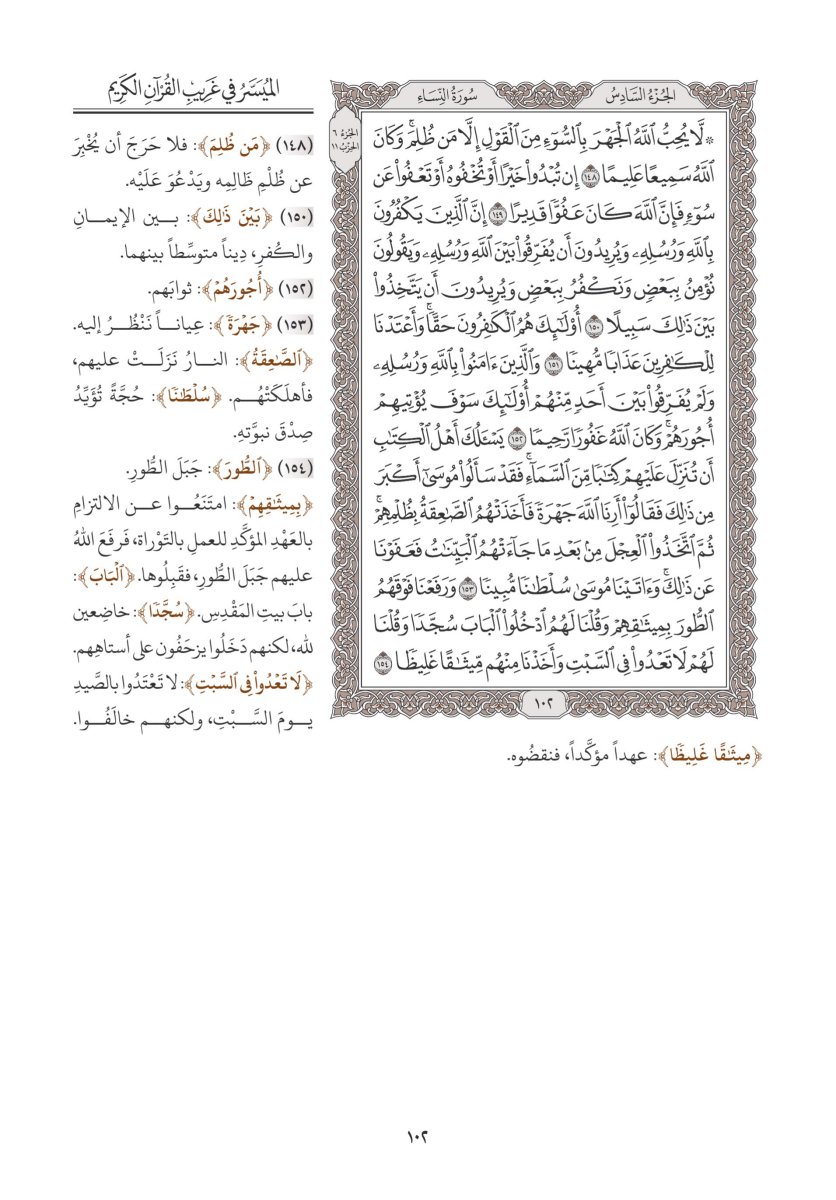 الجُزْءُ السَّادِسُ
سُورَةُ النِّسَاءِ
الجزء ٦
الحزب ١١
* لَّا يُحِبُّ ٱللَّهُ ٱلْجَهْرَ بِٱلسُّوٓءِ مِنَ ٱلْقَوْلِ إِلَّا مَن ظُلِمَۚ وَكَانَ
ٱللَّهُ سَمِيعًا عَلِيمًا ١٤٨ إِن تُبْدُوا۟ خَيْرًا أَوْ تُخْفُوهُ أَوْ تَعْفُوا۟ عَن
سُوٓءٍ فَإِنَّ ٱللَّهَ كَانَ عَفُوًّا قَدِيرًا ١٤٩ إِنَّ ٱلَّذِينَ يَكْفُرُونَ
بِٱللَّهِ وَرُسُلِهِۦ وَيُرِيدُونَ أَن يُفَرِّقُوا۟ بَيْنَ ٱللَّهِ وَرُسُلِهِۦ وَيَقُولُونَ
نُؤْمِنُ بِبَعْضٍ وَنَكْفُرُ بِبَعْضٍ وَيُرِيدُونَ أَن يَتَّخِذُوا۟
بَيْنَ ذَٰلِكَ سَبِيلًا ١٥٠ أُو۟لَٰٓئِكَ هُمُ ٱلْكَٰفِرُونَ حَقًّاۚ وَأَعْتَدْنَا
لِلْكَٰفِرِينَ عَذَابًا مُّهِينًا ١٥١ وَٱلَّذِينَ ءَامَنُوا۟ بِٱللَّهِ وَرُسُلِهِۦ
وَلَمْ يُفَرِّقُوا۟ بَيْنَ أَحَدٍ مِّنْهُمْ أُو۟لَٰٓئِكَ سَوْفَ يُؤْتِيهِمْ
أُجُورَهُمْۚ وَكَانَ ٱللَّهُ غَفُورًا رَّحِيمًا ١٥٢ يَسْـَٔلُكَ أَهْلُ ٱلْكِتَٰبِ
أَن تُنَزِّلَ عَلَيْهِمْ كِتَٰبًا مِّنَ ٱلسَّمَآءِۚ فَقَدْ سَأَلُوا۟ مُوسَىٰٓ أَكْبَرَ
مِن ذَٰلِكَ فَقَالُوٓا۟ أَرِنَا ٱللَّهَ جَهْرَةً فَأَخَذَتْهُمُ ٱلصَّٰعِقَةُ بِظُلْمِهِمْۚ
ثُمَّ ٱتَّخَذُوا۟ ٱلْعِجْلَ مِنۢ بَعْدِ مَا جَآءَتْهُمُ ٱلْبَيِّنَٰتُ فَعَفَوْنَا
عَن ذَٰلِكَۚ وَءَاتَيْنَا مُوسَىٰ سُلْطَٰنًا مُّبِينًا ١٥٣ وَرَفَعْنَا فَوْقَهُمُ
ٱلطُّورَ بِمِيثَٰقِهِمْ وَقُلْنَا لَهُمُ ٱدْخُلُوا۟ ٱلْبَابَ سُجَّدًا وَقُلْنَا
لَهُمْ لَا تَعْدُوا۟ فِى ٱلسَّبْتِ وَأَخَذْنَا مِنْهُم مِّيثَٰقًا غَلِيظًا ١٥٤
١٠٢
المُيَسَّرُ في غَرِيبِ القُرْآنِ الكَرِيم
(١٤٨) ﴿مَن ظُلِمَ﴾: فلا حَرَجَ أن يُخْبِرَ
عن ظُلْمِ ظَالِمِه ويَدْعُوَ عَلَيْه.
(١٥٠) ﴿بَيْنَ ذَٰلِكَ﴾: بين الإيمانِ
والكُفرِ، دِيناً متوسِّطاً بينهما.
(١٥٢) ﴿أُجُورَهُمْ﴾: ثوابَهم.
(١٥٣) ﴿جَهْرَةً﴾: عِياناً نَنْظُرُ إليه.
﴿ٱلصَّٰعِقَةُ﴾: النارُ نَزَلَتْ عليهم،
فأهلَكَتْهُم. ﴿سُلْطَٰنًا﴾: حُجَّةً تُؤَيِّدُ
صِدْقَ نبوَّتِهِ.
(١٥٤) ﴿ٱلطُّورَ﴾: جَبَلَ الطُّورِ.
﴿بِمِيثَٰقِهِمْ﴾: امتَنَعُوا عن الالتزامِ
بالعَهْدِ المؤكَّدِ للعملِ بالتَوْراة، فَرفَعَ اللهُ
عليهم جَبَلَ الطُّورِ، فقَبِلُوها. ﴿ٱلْبَابَ﴾:
بابَ بيتِ المَقْدِسِ. ﴿سُجَّدًا﴾: خاضِعين
لله، لكنهم دَخَلُوا يزحَفُون على أستاهِهم.
﴿لَا تَعْدُوا۟ فِى ٱلسَّبْتِ﴾: لا تَعْتَدُوا بالصَّيدِ
يومَ السَّبْتِ، ولكنهم خالَفُوا.
﴿مِيثَٰقًا غَلِيظًا﴾: عهداً مؤكَّداً، فنقضُوه.
١٠٢